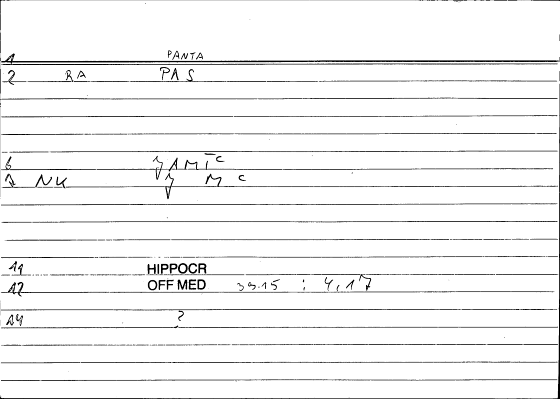 1 PANTA
2 RA PAS
6 AMTC
7 NK M C
11 HIPPOCR
12 OFF MED 39.15 : 4,17
14 ?